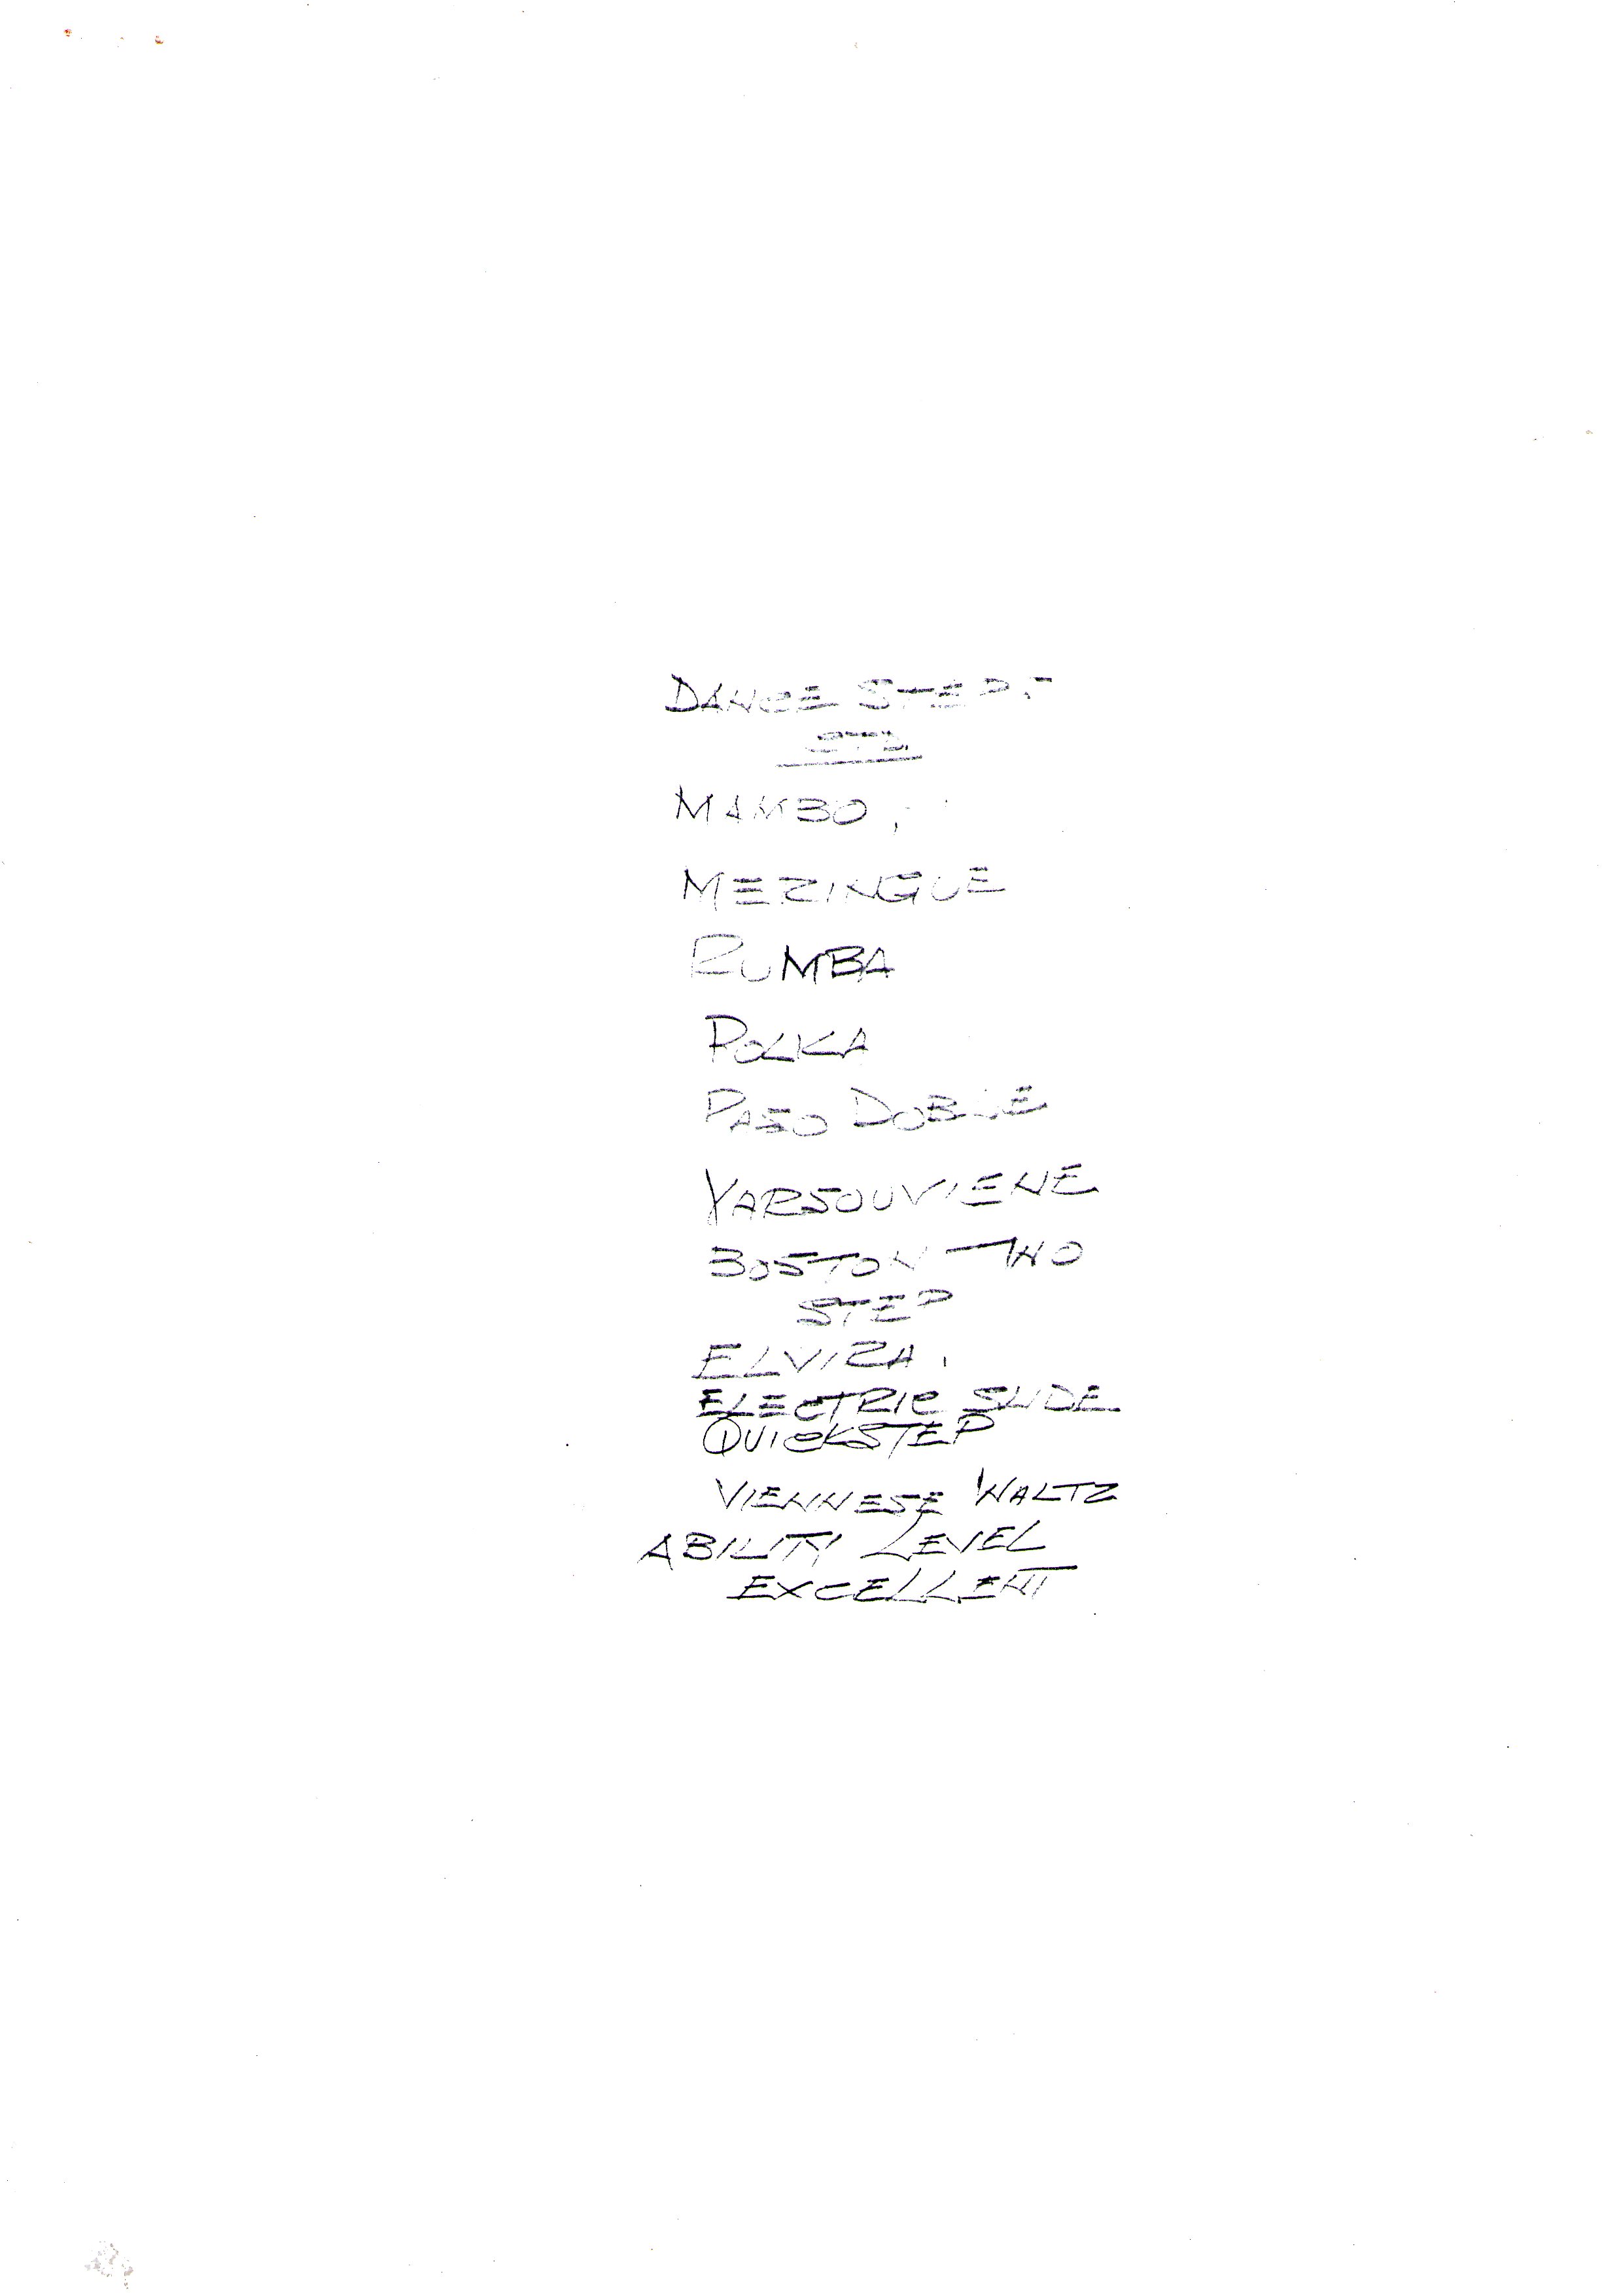 DANCE STEPS
MAMBO,
MERINGUE
RUMBA
POLKA
PASO DOBLE
VARSOUVIENE
BOSTON TWO
STEP
ELVIRA.
ELECTRIC SLIDE
QUICKSTEP
VIENNESE WALTZ
ABILITY LEVEL
EXCELLENT